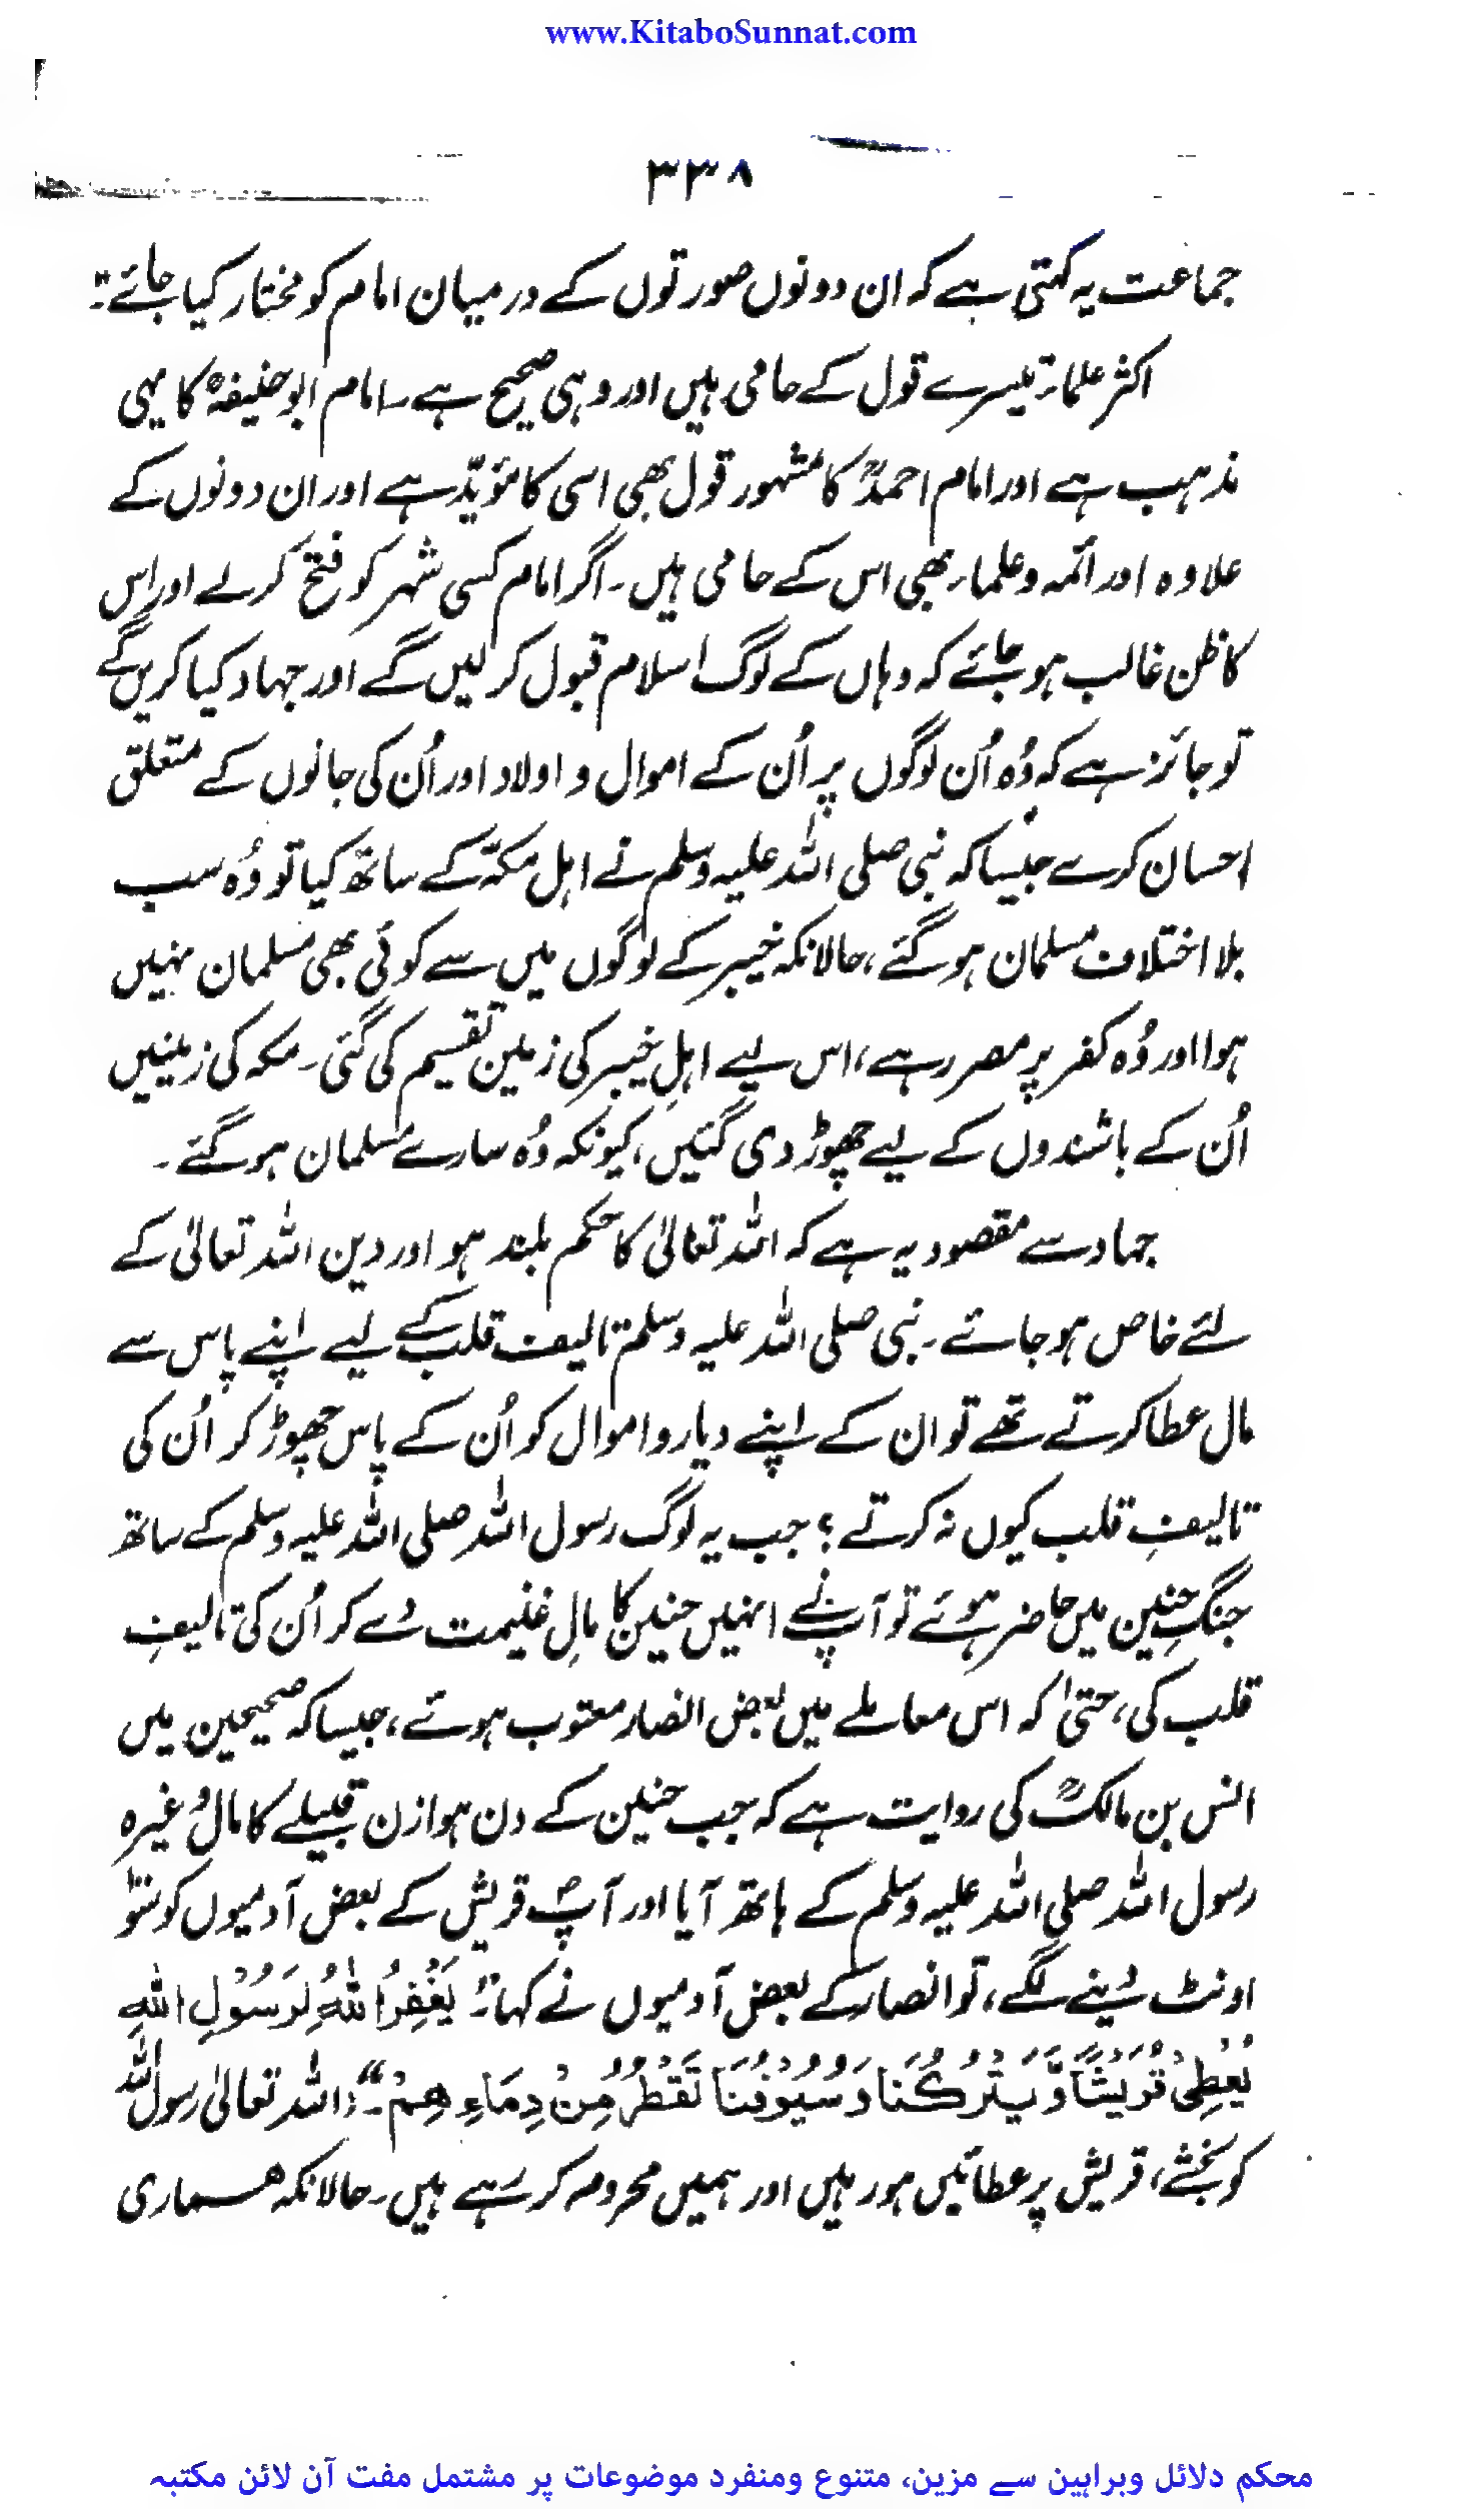 www.KitaboSunnat.com
۳۳۸
جماعت یہ کہتی ہے کہ ان دونوں صورتوں کے درمیان امام کو مختار کیا جائے :
اکثر علماء تیسرے قول کے حامی ہیں اور وہی صحیح ہے۔ امام ابو حنیفہؒ کا یہی
مذہب ہے اور امام احمدؒ کا مشہور قول بھی اسی کا مؤیّد ہے اور ان دونوں کے
علاوہ اور ائمہ و علماء بھی اس کے حامی ہیں۔ اگر امام کسی شہر کو فتح کرلے اور اس
کا ظن غالب ہو جائے کہ وہاں کے لوگ اسلام قبول کرلیں گے اور جہاد کیا کریں گے
تو جائز ہے کہ وُہ اُن لوگوں پر اُن کے اموال و اولاد اور اُن کی جانوں کے متعلق
احسان کرے جیسا کہ نبی صلی اللہ علیہ وسلم نے اہل مکّہ کے ساتھ کیا تو وُہ سب
بلا اختلاف مسلمان ہو گئے، حالانکہ خیبر کے لوگوں میں سے کوئی بھی مسلمان نہیں
ہوا اور وُہ کفر پر مصر رہے، اس لیے اہلِ خیبر کی زمین تقسیم کی گئی۔ مکہ کی زمینیں
اُن کے باشندوں کے لیے چھوڑ دی گئیں، کیونکہ وُہ سارے مسلمان ہو گئے۔
جہاد سے مقصود یہ ہے کہ اللہ تعالیٰ کا حکم بلند ہو اور دین اللہ تعالیٰ کے
لئے خاص ہو جائے۔ نبی صلی اللہ علیہ وسلم تالیف قلب کے لیے اپنے پاس سے
مال عطا کرتے تھے تو ان کے اپنے دیار و اموال کو اُن کے پاس چھوڑ کر اُن کی
تالیفِ قلب کیوں نہ کرتے ؟ جب یہ لوگ رسول اللہ صلی اللہ علیہ وسلم کے ساتھ
جنگِ حنین میں حاضر ہوئے تو آپ نے انہیں حنین کا مالِ غنیمت دے کر اُن کی تالیفِ
قلب کی، حتیٰ کہ اس معاملے میں بعض انصار معتوب ہوئے، جیسا کہ صحیحین میں
انس بن مالکؓ کی روایت ہے کہ جب حنین کے دن ہوازن قبیلے کا مال وغیرہ
رسول اللہ صلی اللہ علیہ وسلم کے ہاتھ آیا اور آپؐ قریش کے بعض آدمیوں کو سَو سَو
اونٹ دینے لگے، تو انصار کے بعض آدمیوں نے کہا: " یَغْفِرُ اللهُ لِرَسُوْلِ اللهِ
یُعْطِیْ قُرَیْشًا وَّیَتْرُکُنَا وَسُیُوْفُنَا تَقْطُرُ مِنْ دِمَاءِهِمْ۔" (اللہ تعالیٰ رسول اللہ
کو بخشے، قریش پر عطائیں ہو رہی ہیں اور ہمیں محروم کر رہے ہیں۔ حالانکہ ہماری
محکم دلائل وبراہین سے مزین، متنوع ومنفرد موضوعات پر مشتمل مفت آن لائن مکتبہ